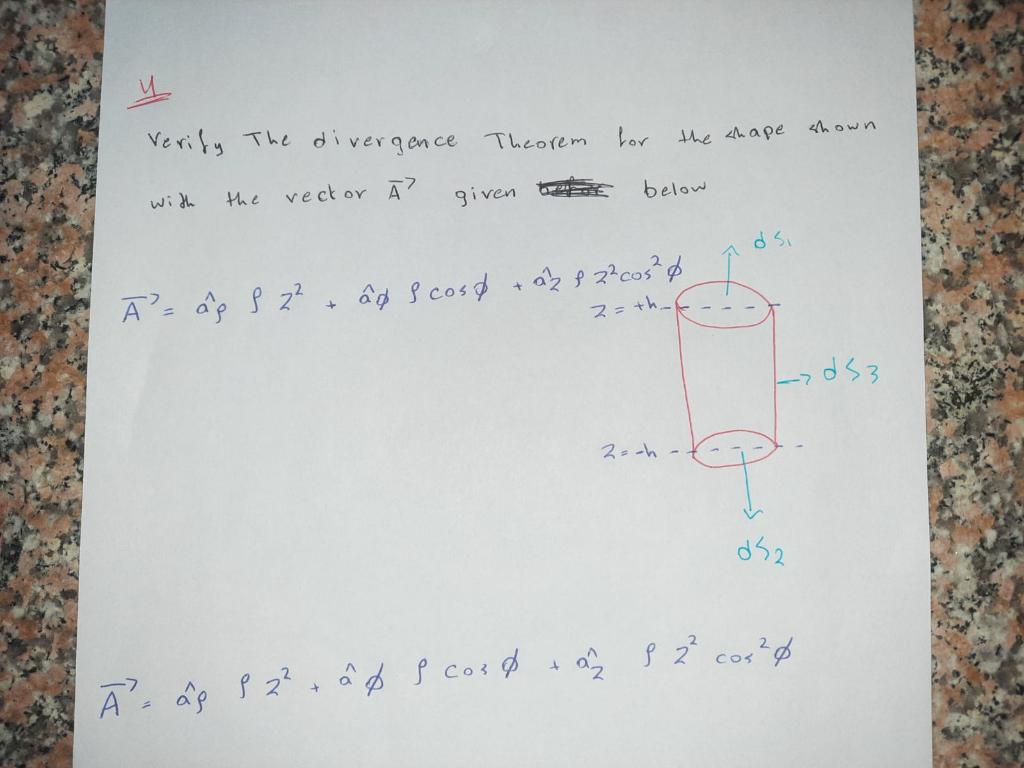 4
Verify The divergence Theorem for the shape shown
with the vector A→ given below
dS₁
A→ = âρ ρ z² + âϕ ρ cosϕ + âz ρ z² cos²ϕ
z = +h
dS3
z = -h
dS2
A→ = âρ ρ z² + âϕ ρ cosϕ + âz ρ z² cos²ϕ